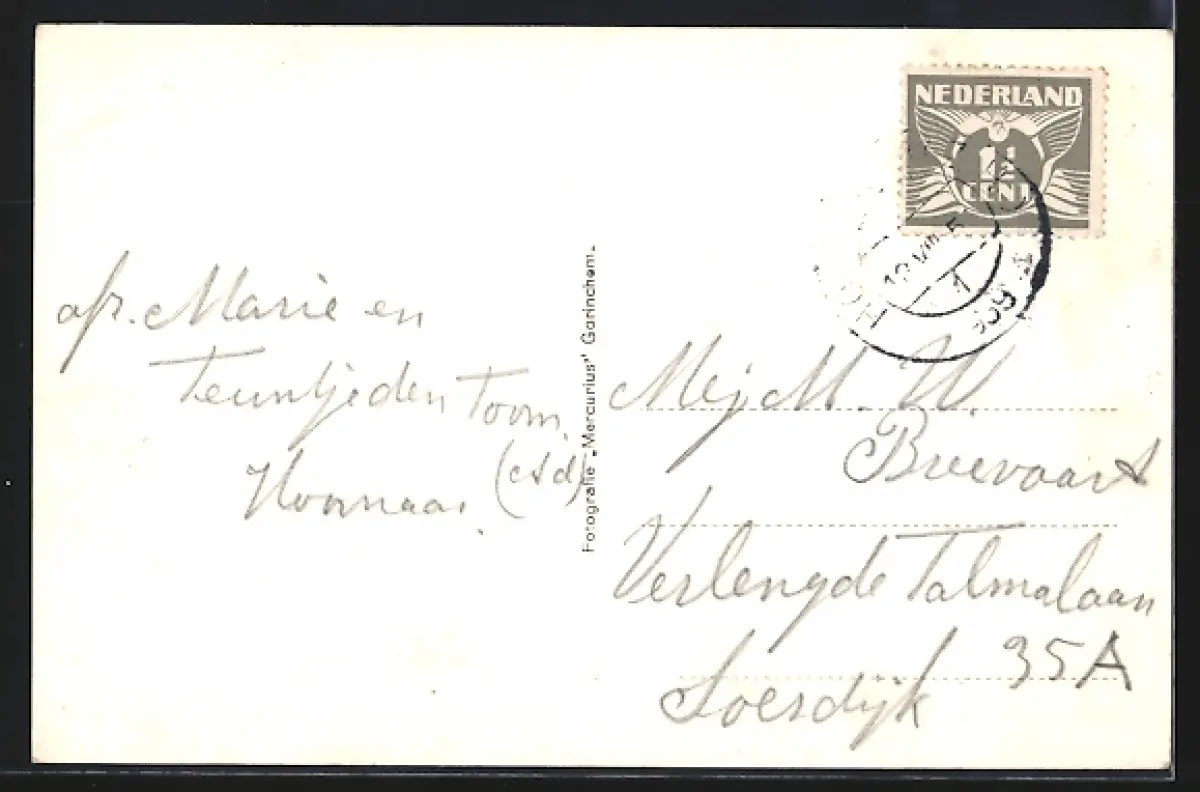 afz. Marie en
Teuntje den Toom
Hoornaar. (ctd)
Fotografie „Mercurius" Gorinchem.
NEDERLAND
1½
CENT
Mej M. W.
Breevaart
Verlengde Talmalaan
35A
Soesdijk